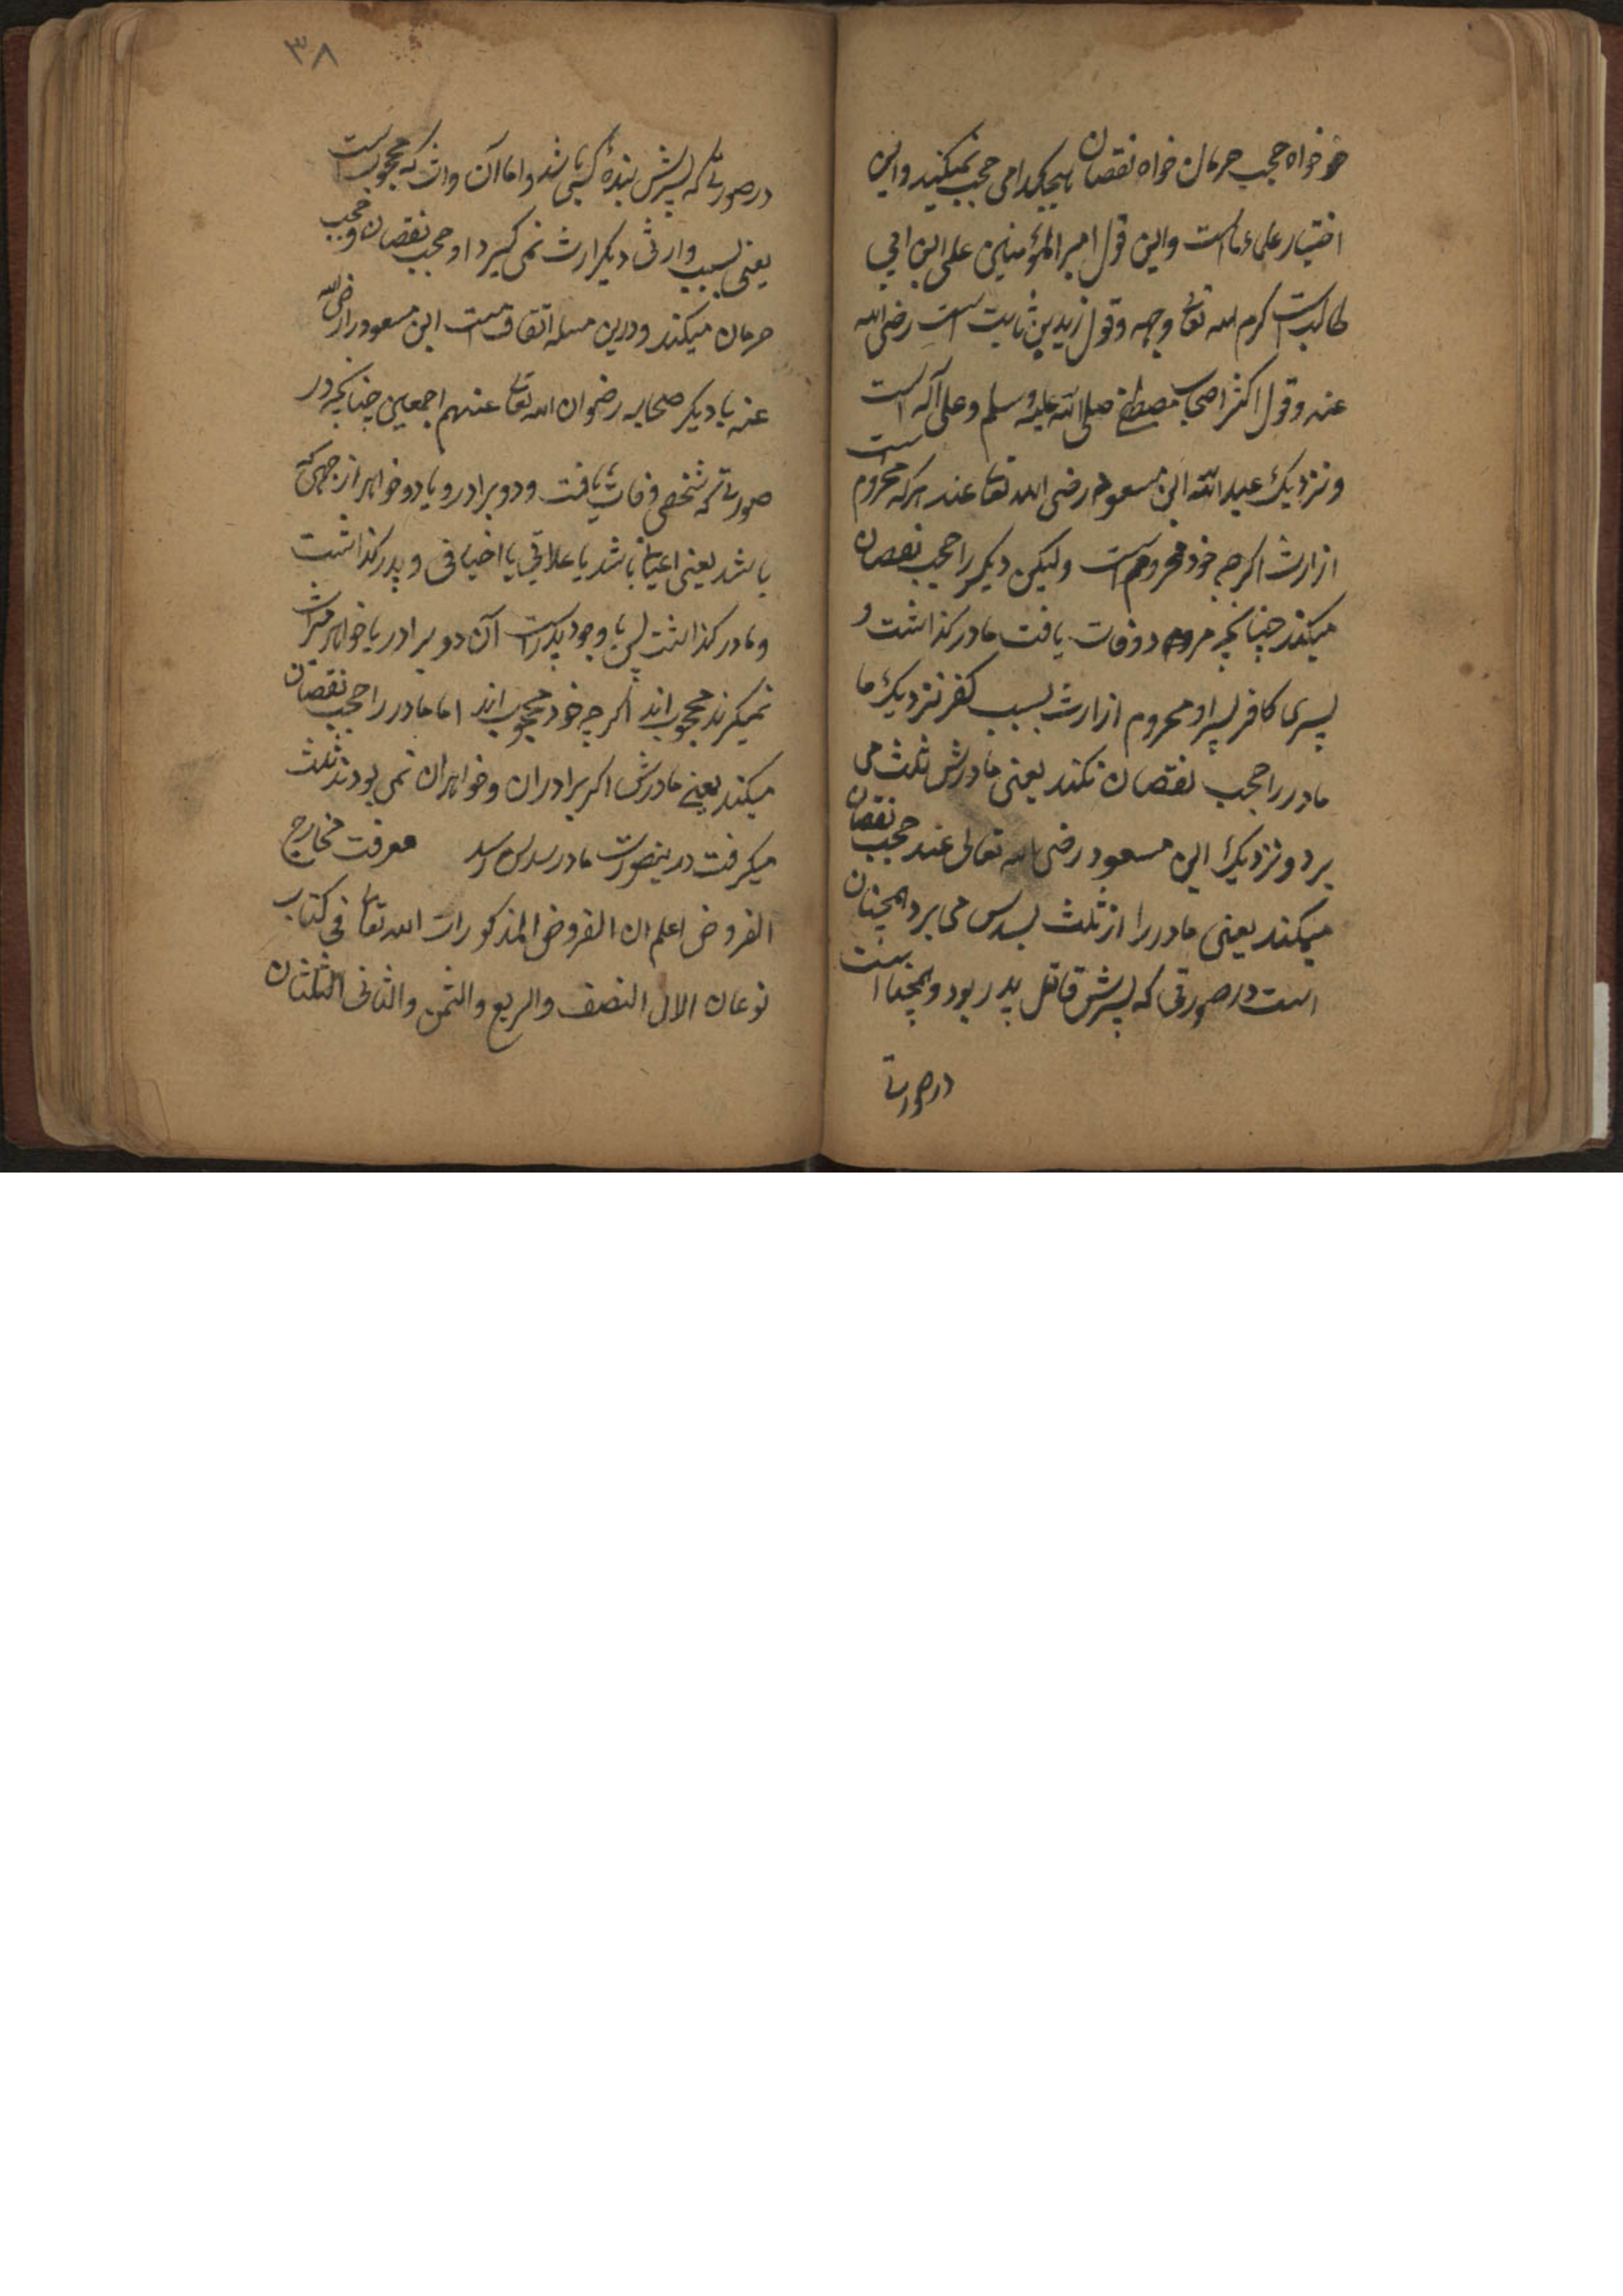 خواه حجب حرمان خواه نقصان هیچکدامی حجب نمیکند و این
اختیار علماء ماست و این قول امیر المؤمنین علی ابن ابی
طالب است کرم الله تعالی وجهه و قول زید بن ثابت است رضی الله
عنه و قول اکثر اصحاب مصطفی صلی الله علیه وسلم وعلی آله است
و نزدیک عبد الله ابن مسعود رضی الله تعالی عنه هرکه محروم است
از ارث اکرچه خود محروم است ولیکن دیکر را حجب نقصان
میکند چنانچه مردی وفات یافت مادر کذاشت و
پسری کافر پسر او محروم از ارث بسبب کفر نزدیک ما
مادر را حجب نقصان نکند یعنی مادرش ثلث می
برد و نزدیک ابن مسعود رضی الله تعالی عنه حجب نقصان
میکند یعنی مادر را از ثلث بسدس می برد همچنان
است در صورتی که پسرش قاتل پدر بود و همچنانست
در صورتی
۳۸
در صورتی که پسرش بندهٔ کسی باشد و اما آن وارث که محجوب است
یعنی بسبب وارثی دیکر ارث نمی کیرد او حجب نقصان و حجب
حرمان میکند و درین مسله اتفاقست ابن مسعود را رضی الله
عنه با دیکر صحابه رضوان الله تعالی عنهم اجمعین چنانچه در
صورتی که شخصی وفات یافت و دو برادر و یا دو خواهر از هر جهتی که
باشد یعنی اعیانی باشد یا علاتی یا اخیافی و پدر کذاشت
و مادر کذاشت پس با وجود پدر است آن دو برادر یا خواهر میراث
نمیکرند محجوب اند اکرچه خود محجوب اند اما مادر را حجب نقصان
میکند یعنی مادرش اکر برادران و خواهران نمی بودند ثلث
میکرفت درینصورت مادر سدس رسد معرفت مخارج
الفروض اعلم ان الفروض المذکورات الله تعالی فی کتاب
نوعان الاول النصف والربع والثمن والثانی الثلثان